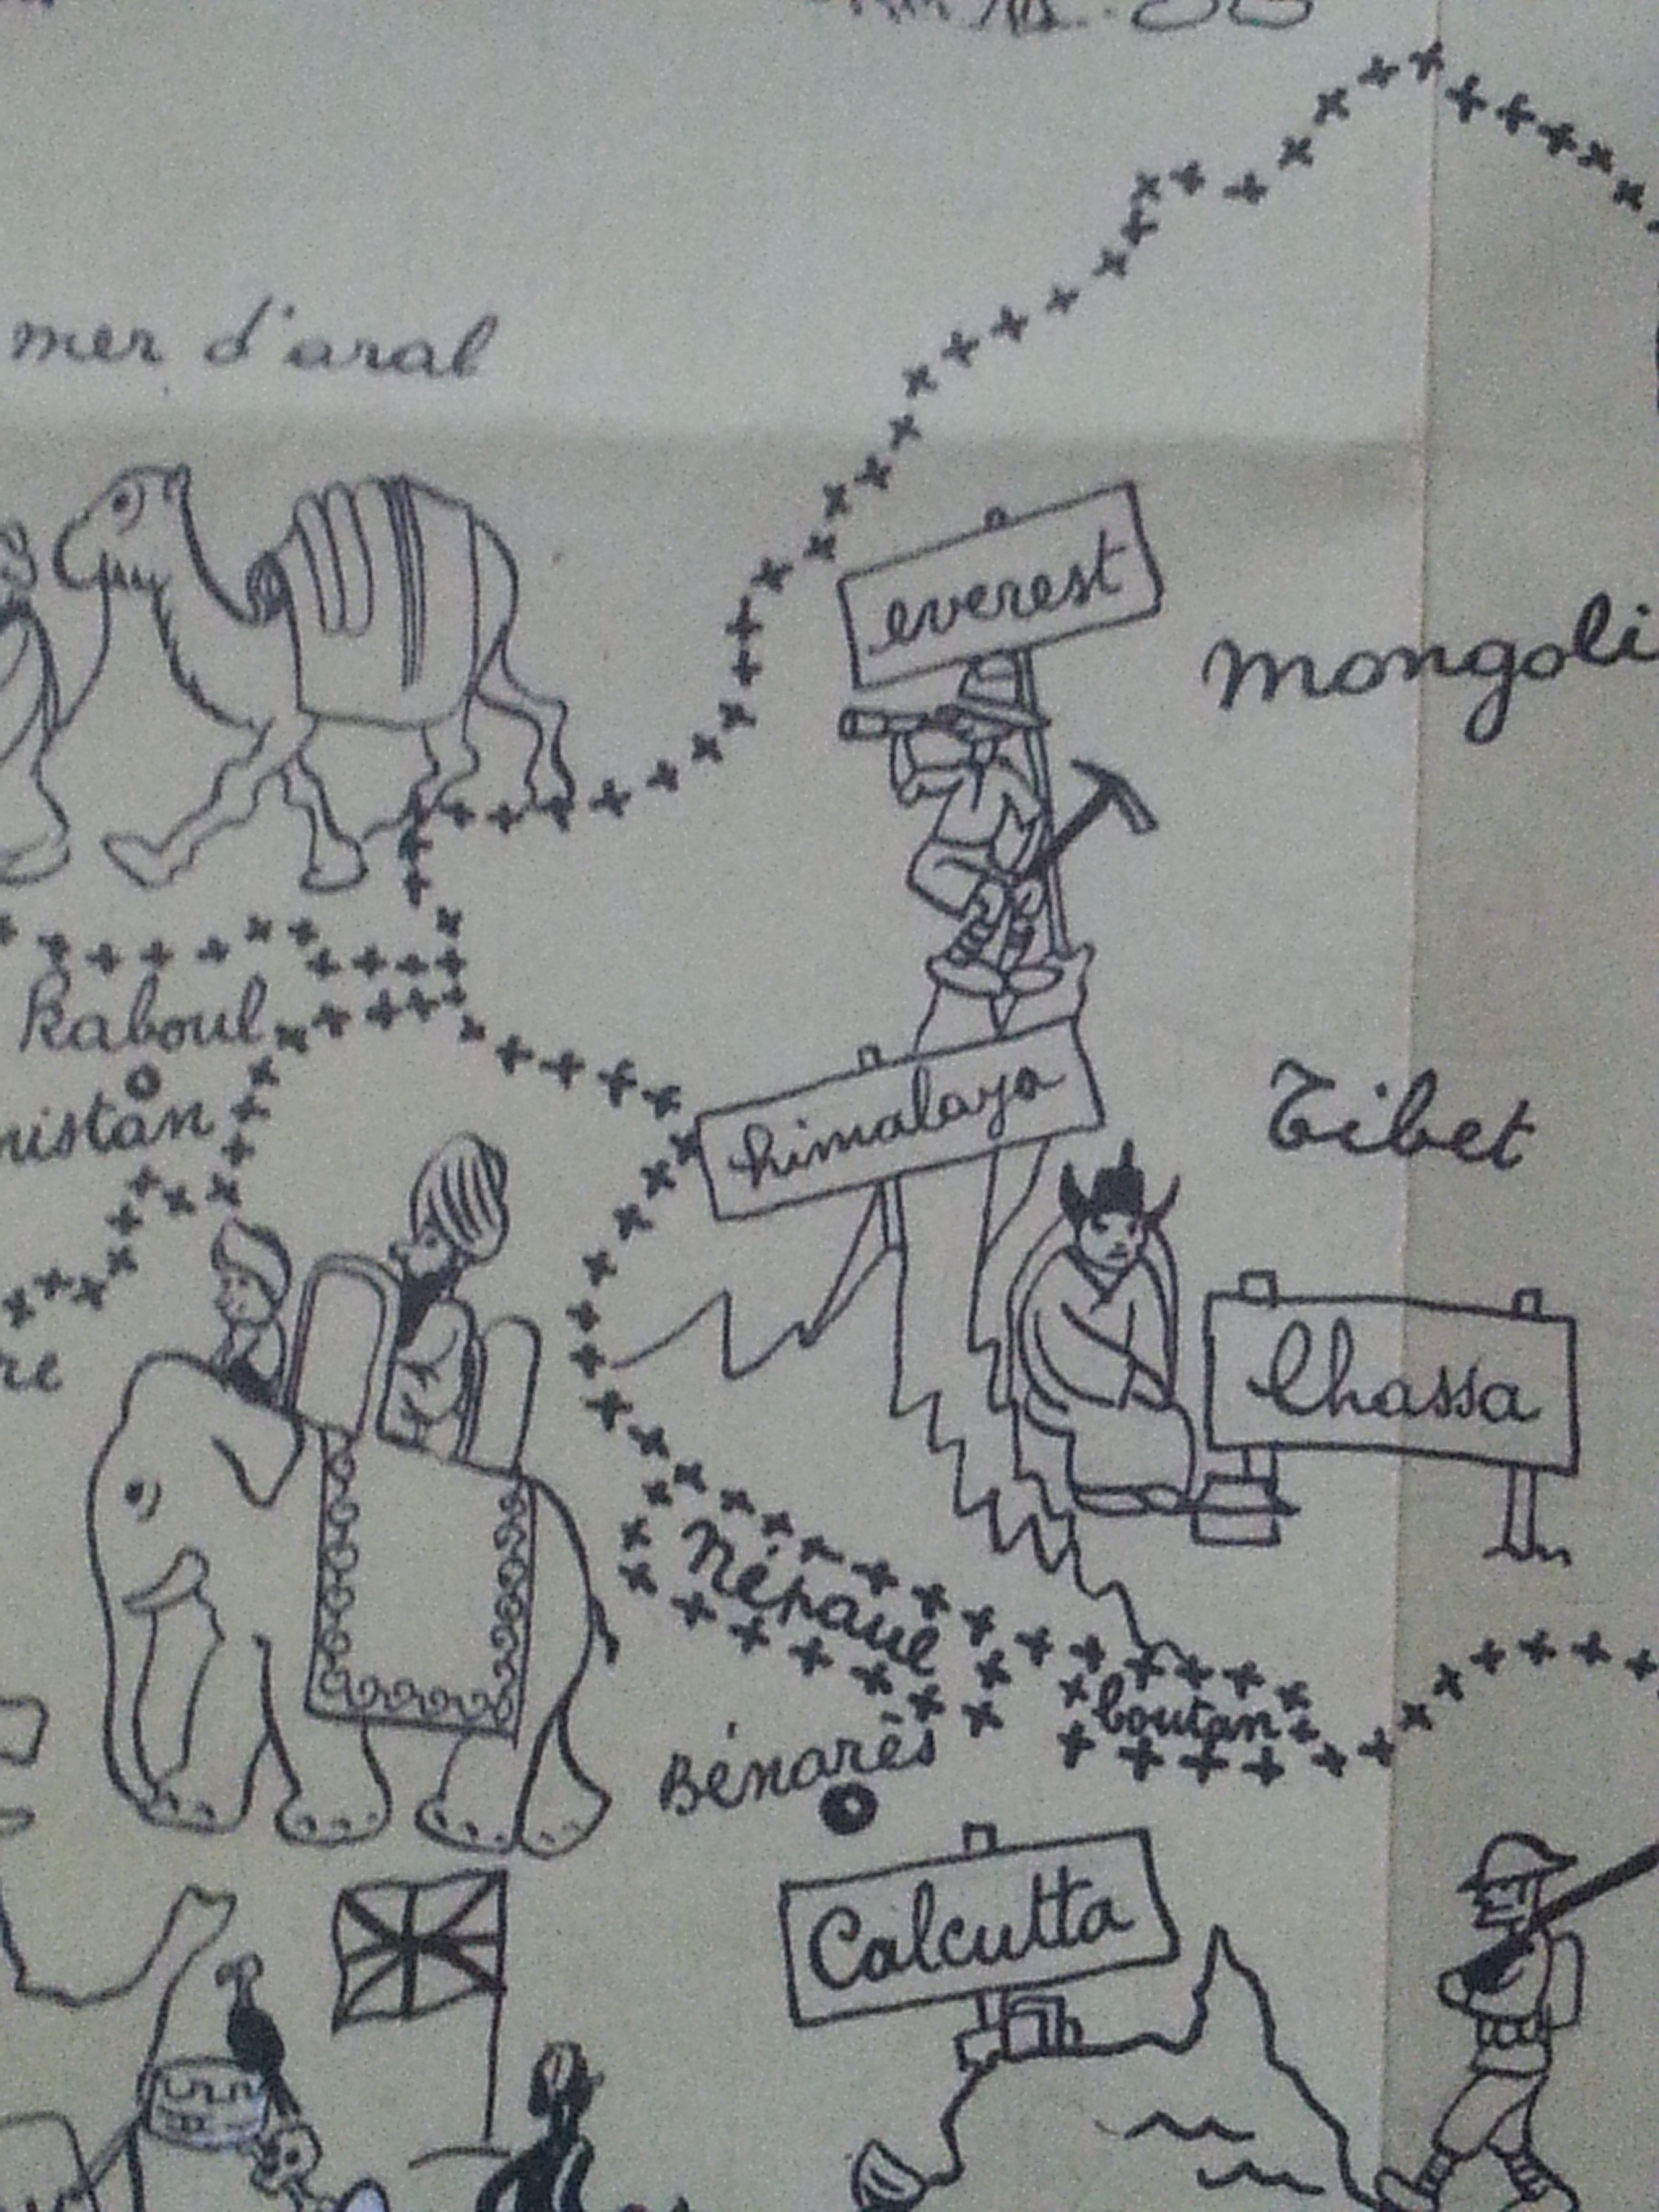 mer d'aral
everest
mongoli
Kaboul
nistan
himalaya
Tibet
re
lhassa
Népaul
boutan
Bénarès
Calcutta